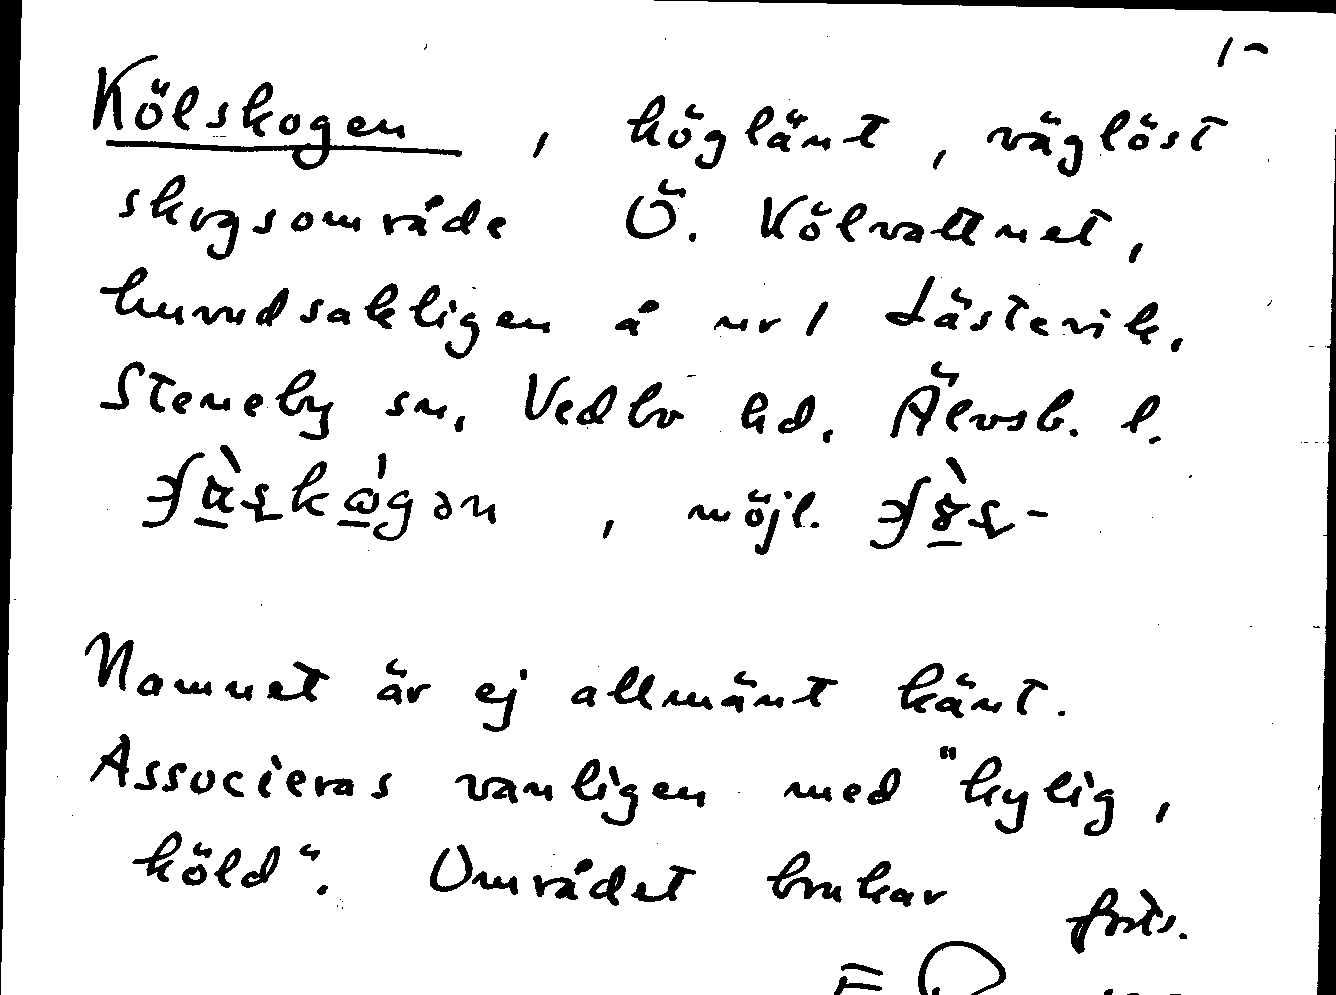 1⁓
Kölskogen, höglänt, väglöst
skogsområde Ö. Kölvattnet,
huvudsakligen å nr 1 Låsterik.
Steneby sn, Vedbo hd, Älvsb. l.
, möjl.
Namnet är ej allmänt känt.
Associeras vanligen med "kylig,
köld". Området brukar forts.